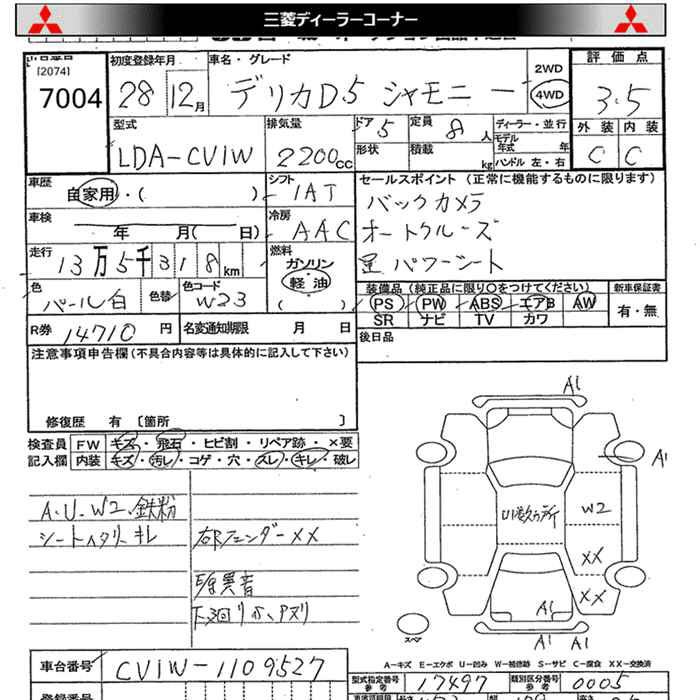 三菱ディーラーコーナー
[2074]
7004
初度登録年月
28 12月
車名・グレード
デリカD5 シャモニー
2WD
4WD
評価点
3.5
外装 内装
C C
型式
LDA-CV1W
排気量
2200cc
ドア 5
定員 8人
形状
積載 kg
ディーラー・並行
モデル年式 年
ハンドル 左・右
車歴
自家用・( )
シフト
IAT
セールスポイント (正常に機能するものに限ります)
バックカメラ
オートクルーズ
パワーシート
車検
年 月( 日)
冷房
AAC
走行
13万5千318km
燃料
ガソリン
軽油
( )
色
パール白
色替
色コード
W23
装備品 (純正品に限り○をつけてください)
PS PW ABS エアB AW
SR ナビ TV カワ
新車保証書
有・無
R券
14710円
名変通知期限 月 日
後日品
注意事項申告欄(不具合内容等は具体的に記入して下さい)
修復歴 有 [箇所 ]
検査員 FW キズ・飛石・ヒビ割・リペア跡・×要
記入欄 内装 キズ・汚レ・コゲ・穴・スレ・キレ・破レ
A.U.W2.鉄粉
シートヘタリ・キレ
右Rフェンダー××
異音
A1
A1
U1数ヵ所
W2
XX
XX
A1
A1 A1
スペア
A-キズ E-エクボ U-凹み W-補修跡 S-サビ C-腐食 XX-交換済
車台番号
CV1W-1109527
型式指定番号
参考
17497
類別区分番号
参考
0005